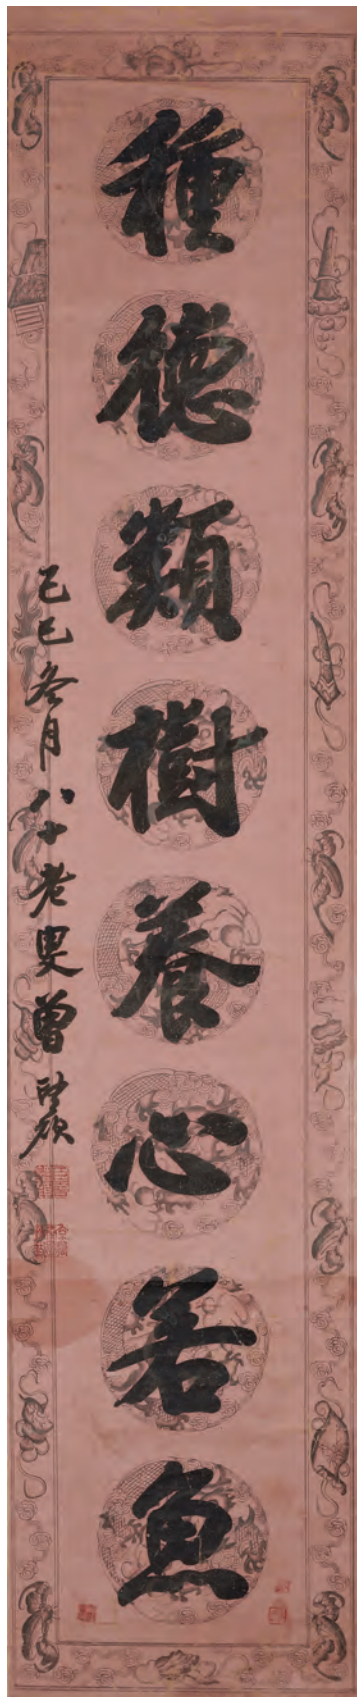 種德類樹養心若魚
己巳冬月八十老叟曾熙